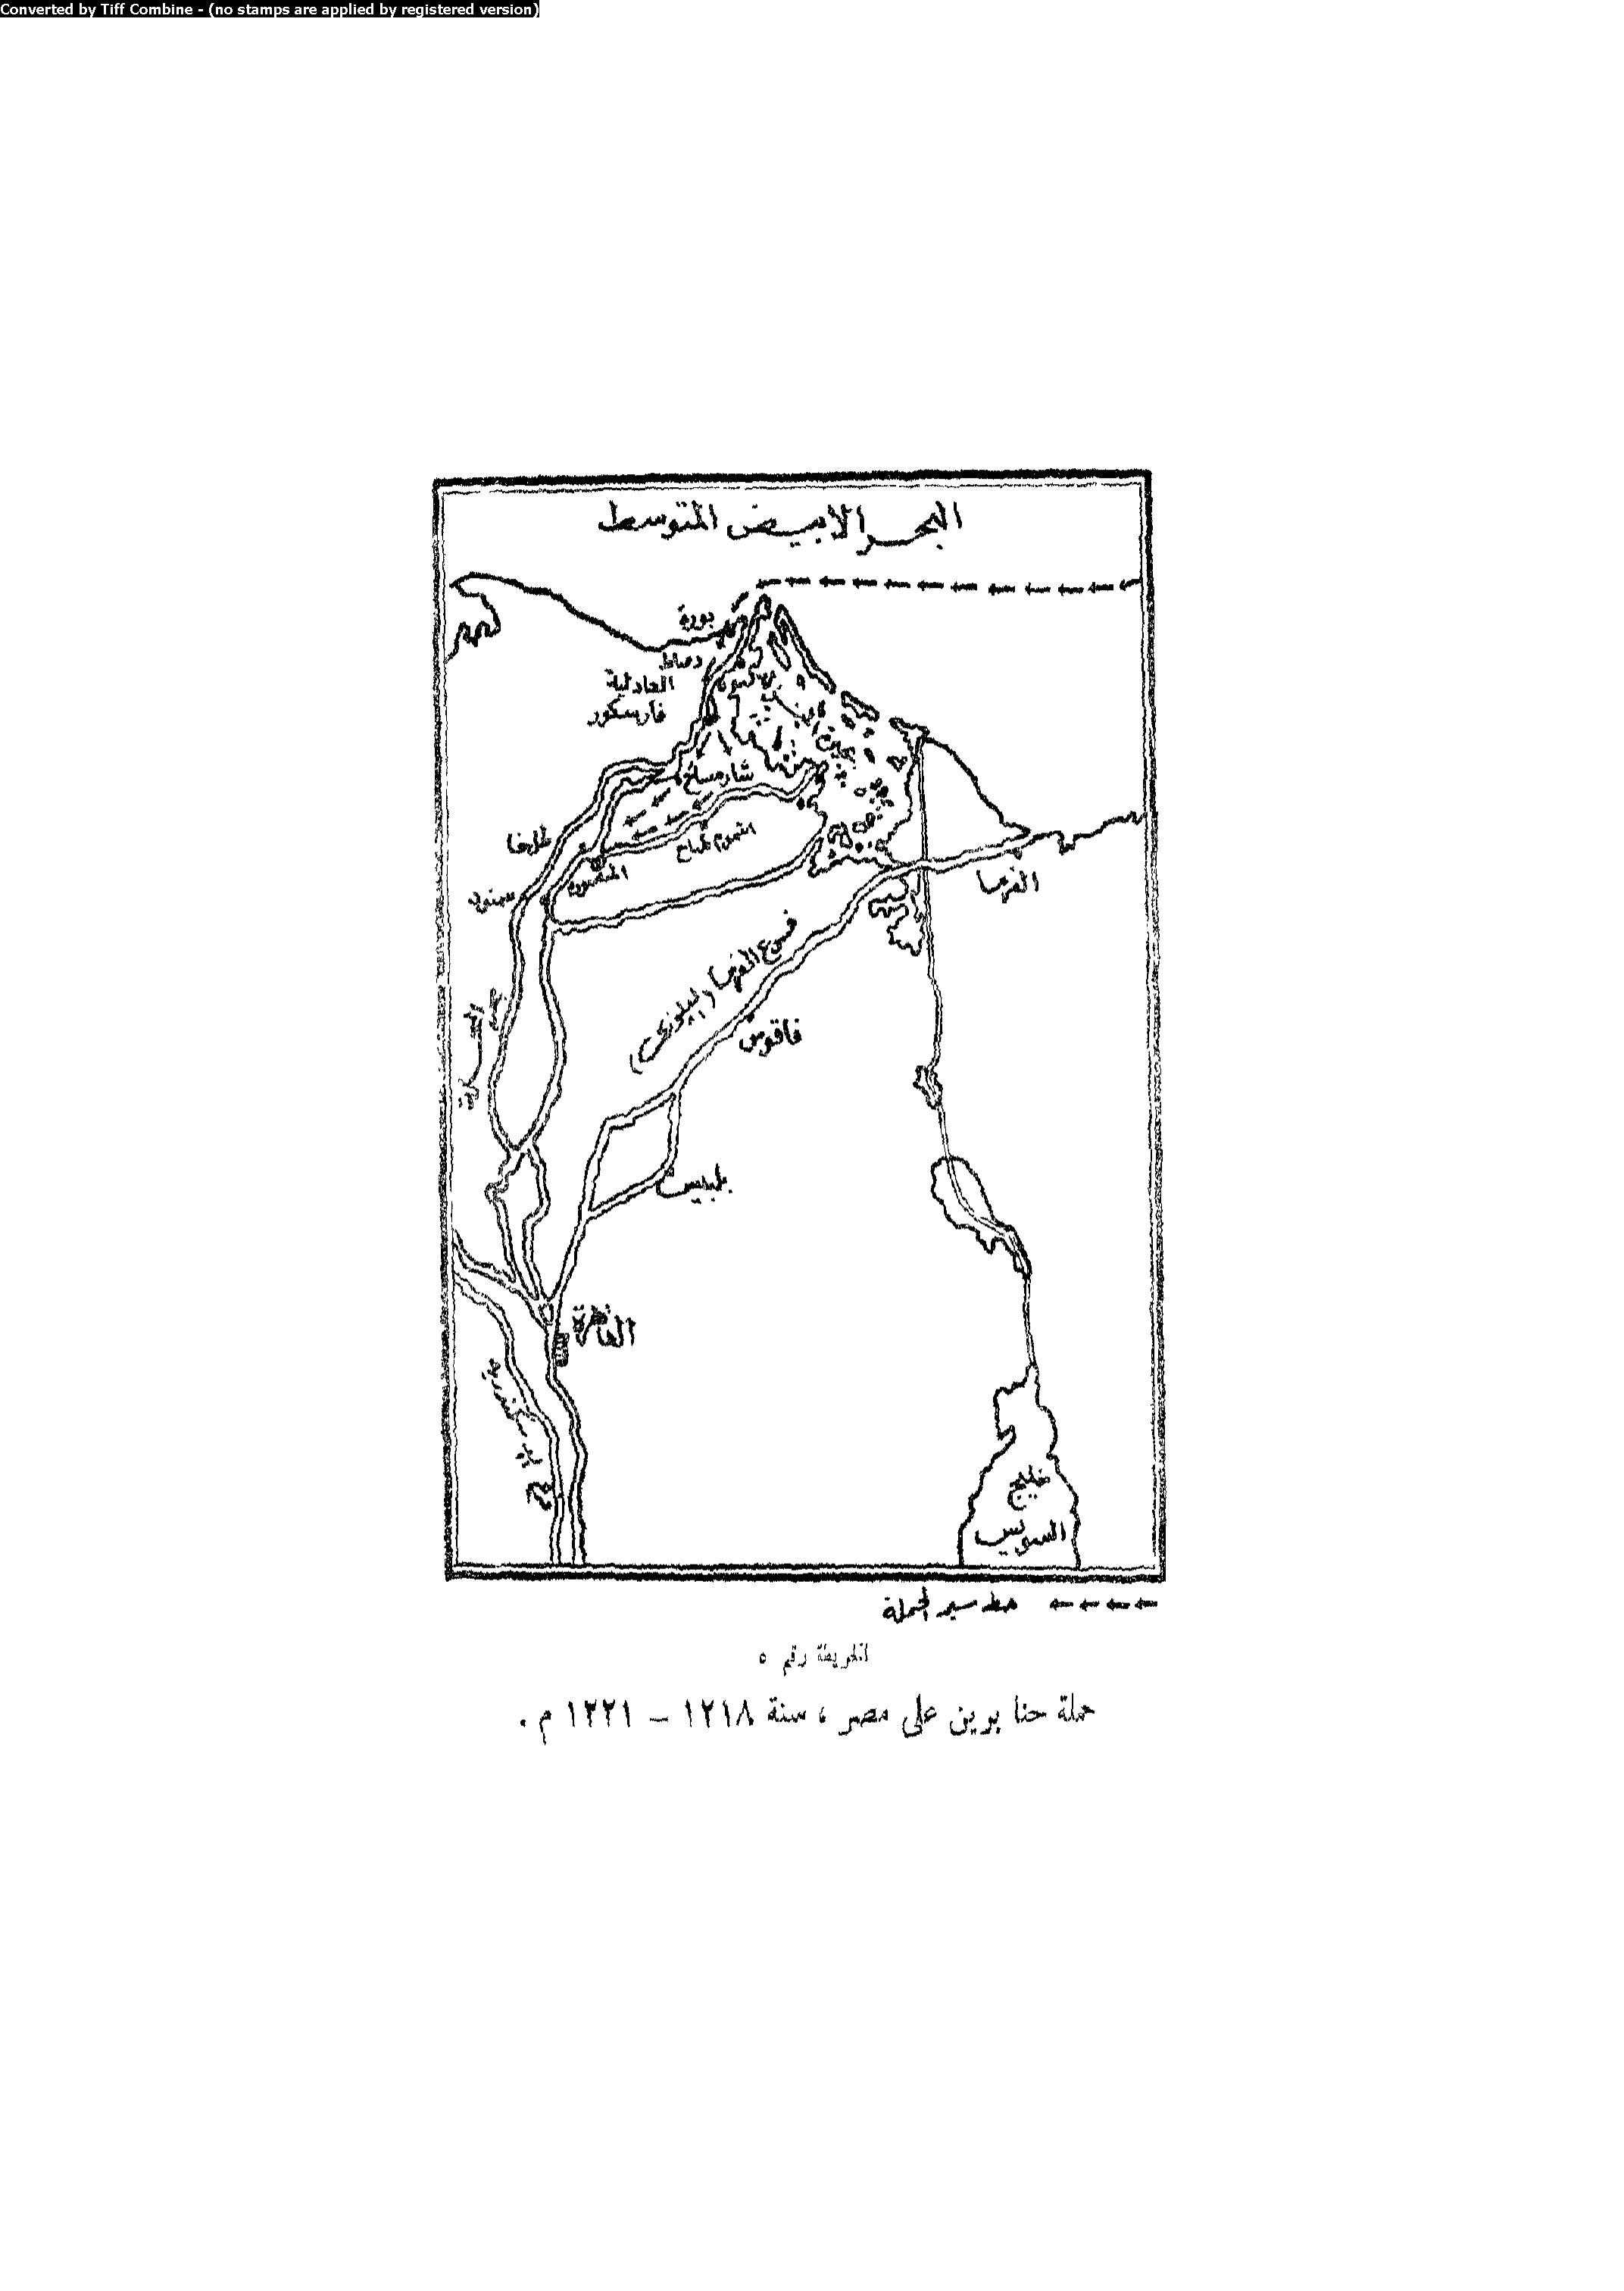 Converted by Tiff Combine - (no stamps are applied by registered version)
البحر الأبيض المتوسط
بورة
دمياط
العادلية
فارسكور
شارمساح
طلخا
اشموم طناح
المنصورة
سمنود
الفرما
فرع الفرما (البيلوزى)
فاقوس
بلبيس
القاهرة
خليج
السويس
خط سير الحملة
الخريطة رقم ٥
حملة حنا برين على مصر ، سنة ١٢١٨ – ١٢٢١ م .